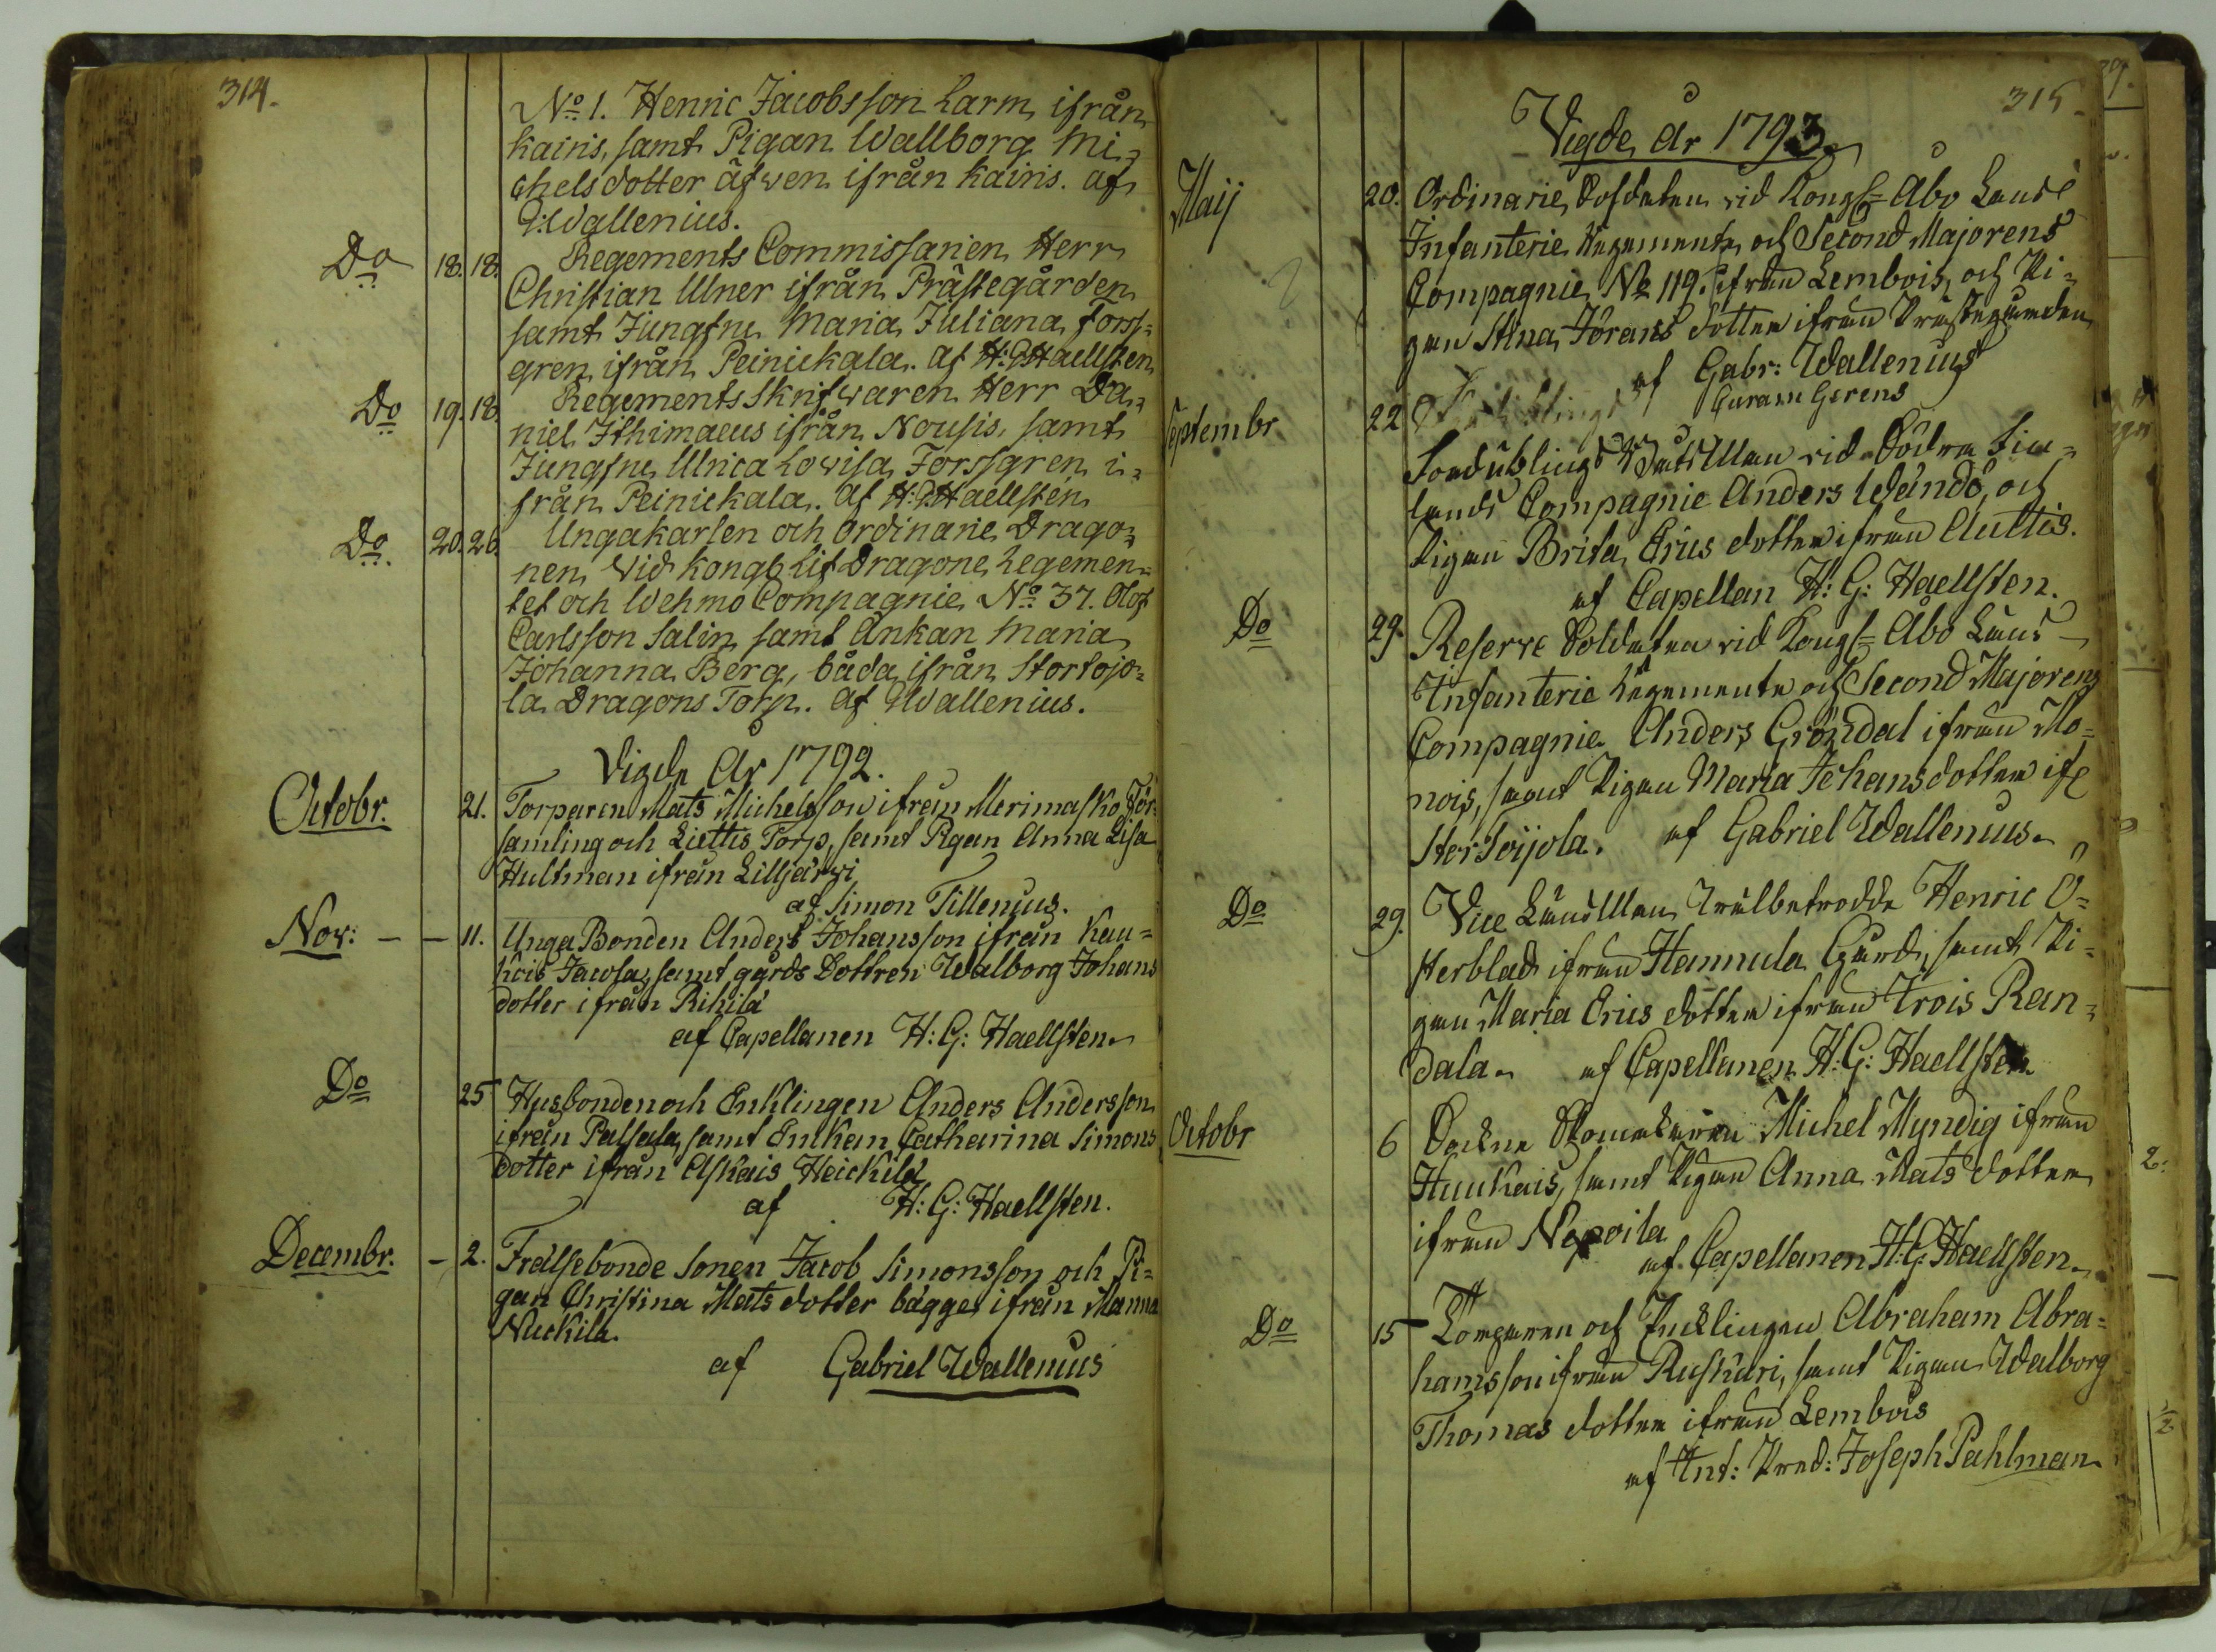 314.
No 1. Henric Jacobsson Larm, ifrån
Kairis, samt Pigan Wallborg Mi=
chels dotter äfwen ifrån Kairis. af
G: Wallenius.
Do 18. 18. Regements Commissarien Herr
Christian Ulner ifrån Prästegården
samt Jungfru Maria Juliana Forss=
gren ifrån Peinickala. af H: G Haellsten
Do 19. 18. Regements Skrifwaren Herr Da=
niel Ithimaeus ifrån Nousis, samt
Jungfru Ulrica Lovisa Forssgren i=
från Peinickala. Af H: G Haellsten
Do 20. 26. Ungakarlen och Ordinarie Drago=
nen vid Kongl Lif Dragone Regemen=
tet och Wehmo Compagnie No 37. Olof
Carlsson Salin, samt Änkan Maria
Johanna Berg, båda ifrån Stortojo=
la Dragons Torp. af G Wallenius.
Vigde År 1792.
Octobr. 21. Torparen Mats Michelsson ifrån Merimasko För=
samling och Liettis Torp, samt Pigan Anna Lisa
Hultman ifrån Lilljärwi
af Simon Tillenius.
Nov: — — 11. Unga Bonden Anders Johansson ifrån Kau=
kois Jacosa, samt gårds Dottren Walborg Johans
dotter ifrån Rihilä
af Capellanen H: G: Haellsten
Do 25 Husbonden och Enklingen Anders Andersson
ifrån Palsala, samt Enkan Catharina Simons
dotter ifrån Askais Heickilä
af H: G: Haellsten.
Decembr. — 2. Frälsebonde Sonen Jacob Simonsson och Pi=
gan Christina Mats dotter bägge ifrån Manna
Nuckila.
af Gabriel Wallenius
315.
Vigde År 1793.
Maij 20. Ordinarie Soldaten vid Kongl Åbo Läns
Infanterie Regemente och Second Majorens
Compagnie No 119. ifrån Lembois, och Pi=
gan Stina Jörans dotter ifrån Prästegården
af Gabr: Wallenius
Curam Gerens
Septembr 22
vid Södra Fin=
lands Compagnie Anders Wändö, och
Pigan Brita Erics dotter ifrån Auttis.
af Capellan H: G: Haellsten.
Do 29. Reserve Soldaten vid Kongl Åbo Läns
Infanterie Regemente och Second Majorens
Compagnie Anders Gröndal ifrån Mo=
nois, samt Pigan Maria Johans dotter ifr
Stortoijola. af Gabriel Wallenius
Do 29. Vice Länsman Wälbetrodde Henric Ö=
sterblad ifrån Hannula Gård, samt Pi=
gan Maria Erics dotter ifrån Trois Ran=
dala. af Capellanen H: G: Haellsten
Octobr 6 Sockne Skomakaren Michel Myndig ifrån
Huukais, samt Pigan Anna Mats dotter
ifrån Nepoila
af Capellanen H: G: Haellsten
Do 15 Torparen och Encklingen Abraham Abra=
hamsson ifrån Ruskiari, samt Pigan Walborg
Thomas dotter ifrån Lembois
af Int: Pred: Joseph Pahlman